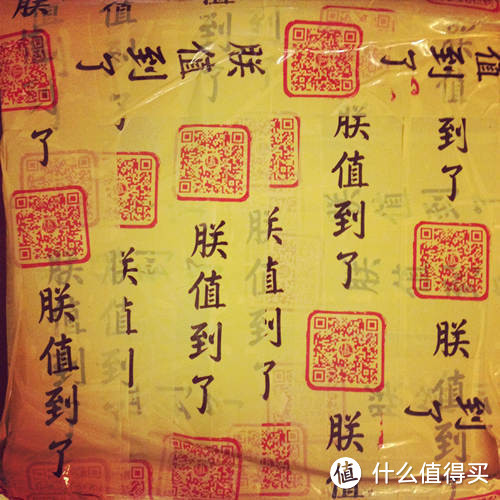 朕值
朕值到了
到了
值到了
到了
了
朕值到了
朕值到了
朕值到了
朕值到了
朕值到了
朕
朕
到了
值 什么值得买